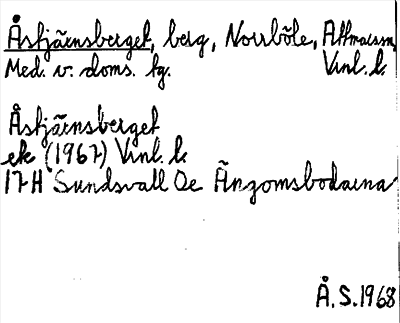 Åstjärnsberget, berg, Norrböle, Attmarson,
Med. v. doms. tg. Vinl. l.
Åstjärnsberget
ek (1967) Vinl. l.
17H Sundsvall Oe Ängomsbodarna
Å.S. 1968